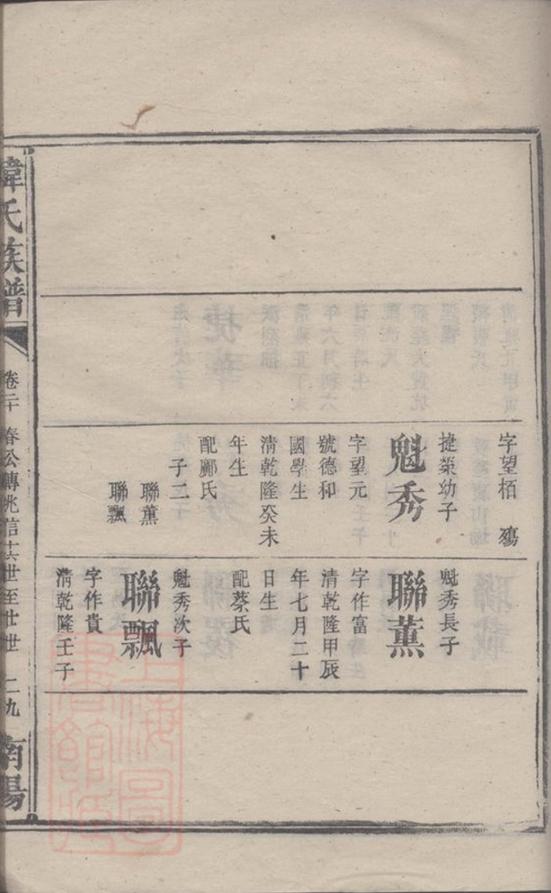 字望栢 殤
捷榮幼子
魁秀
字望元
號德和
國學生
清乾隆癸未
年生
配鄺氏
子二
聯薰
聯飄
魁秀長子
聯薰
字作富
清乾隆甲辰
年七月二十
日生
配蔡氏
魁秀次子
聯飄
字作貴
清乾隆壬子
韓氏族譜
卷二十 春公轉兆信
世至廿世 二九
南陽